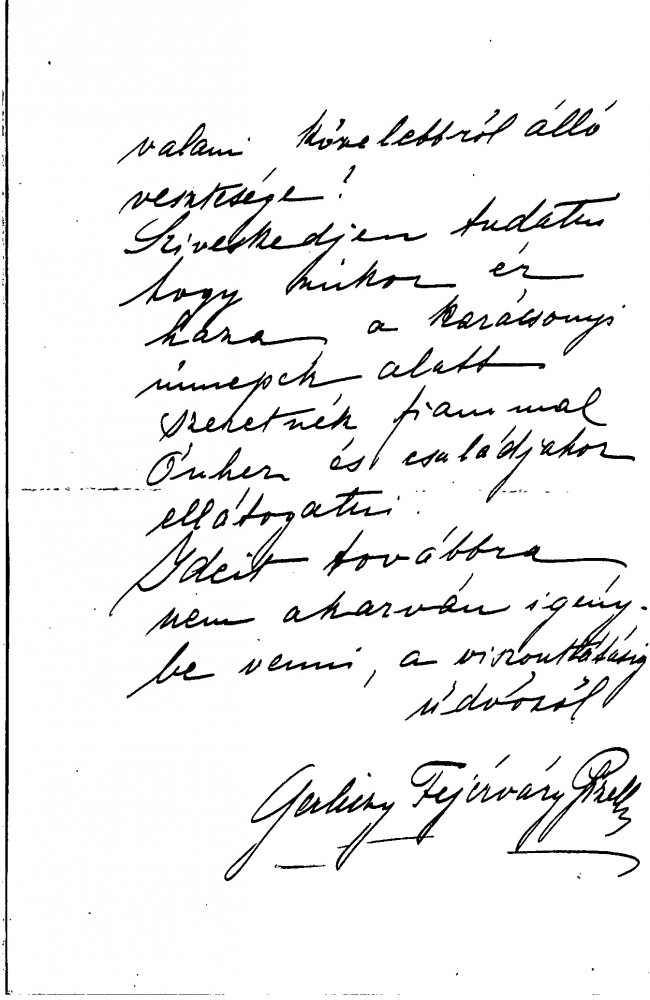 valami közelebbről álló
vesztesége!
Sziveskedjen tudatni
hogy mikor ér
haza, a karácsonyi
ünnepek alatt
szeretnék fiammal
Önhez és családjához
ellátogatni.
Ideit továbbra
nem akarván igény-
be venni, a viszontlátásig
üdvözöl
Gerliczy Fejérváry Gizella